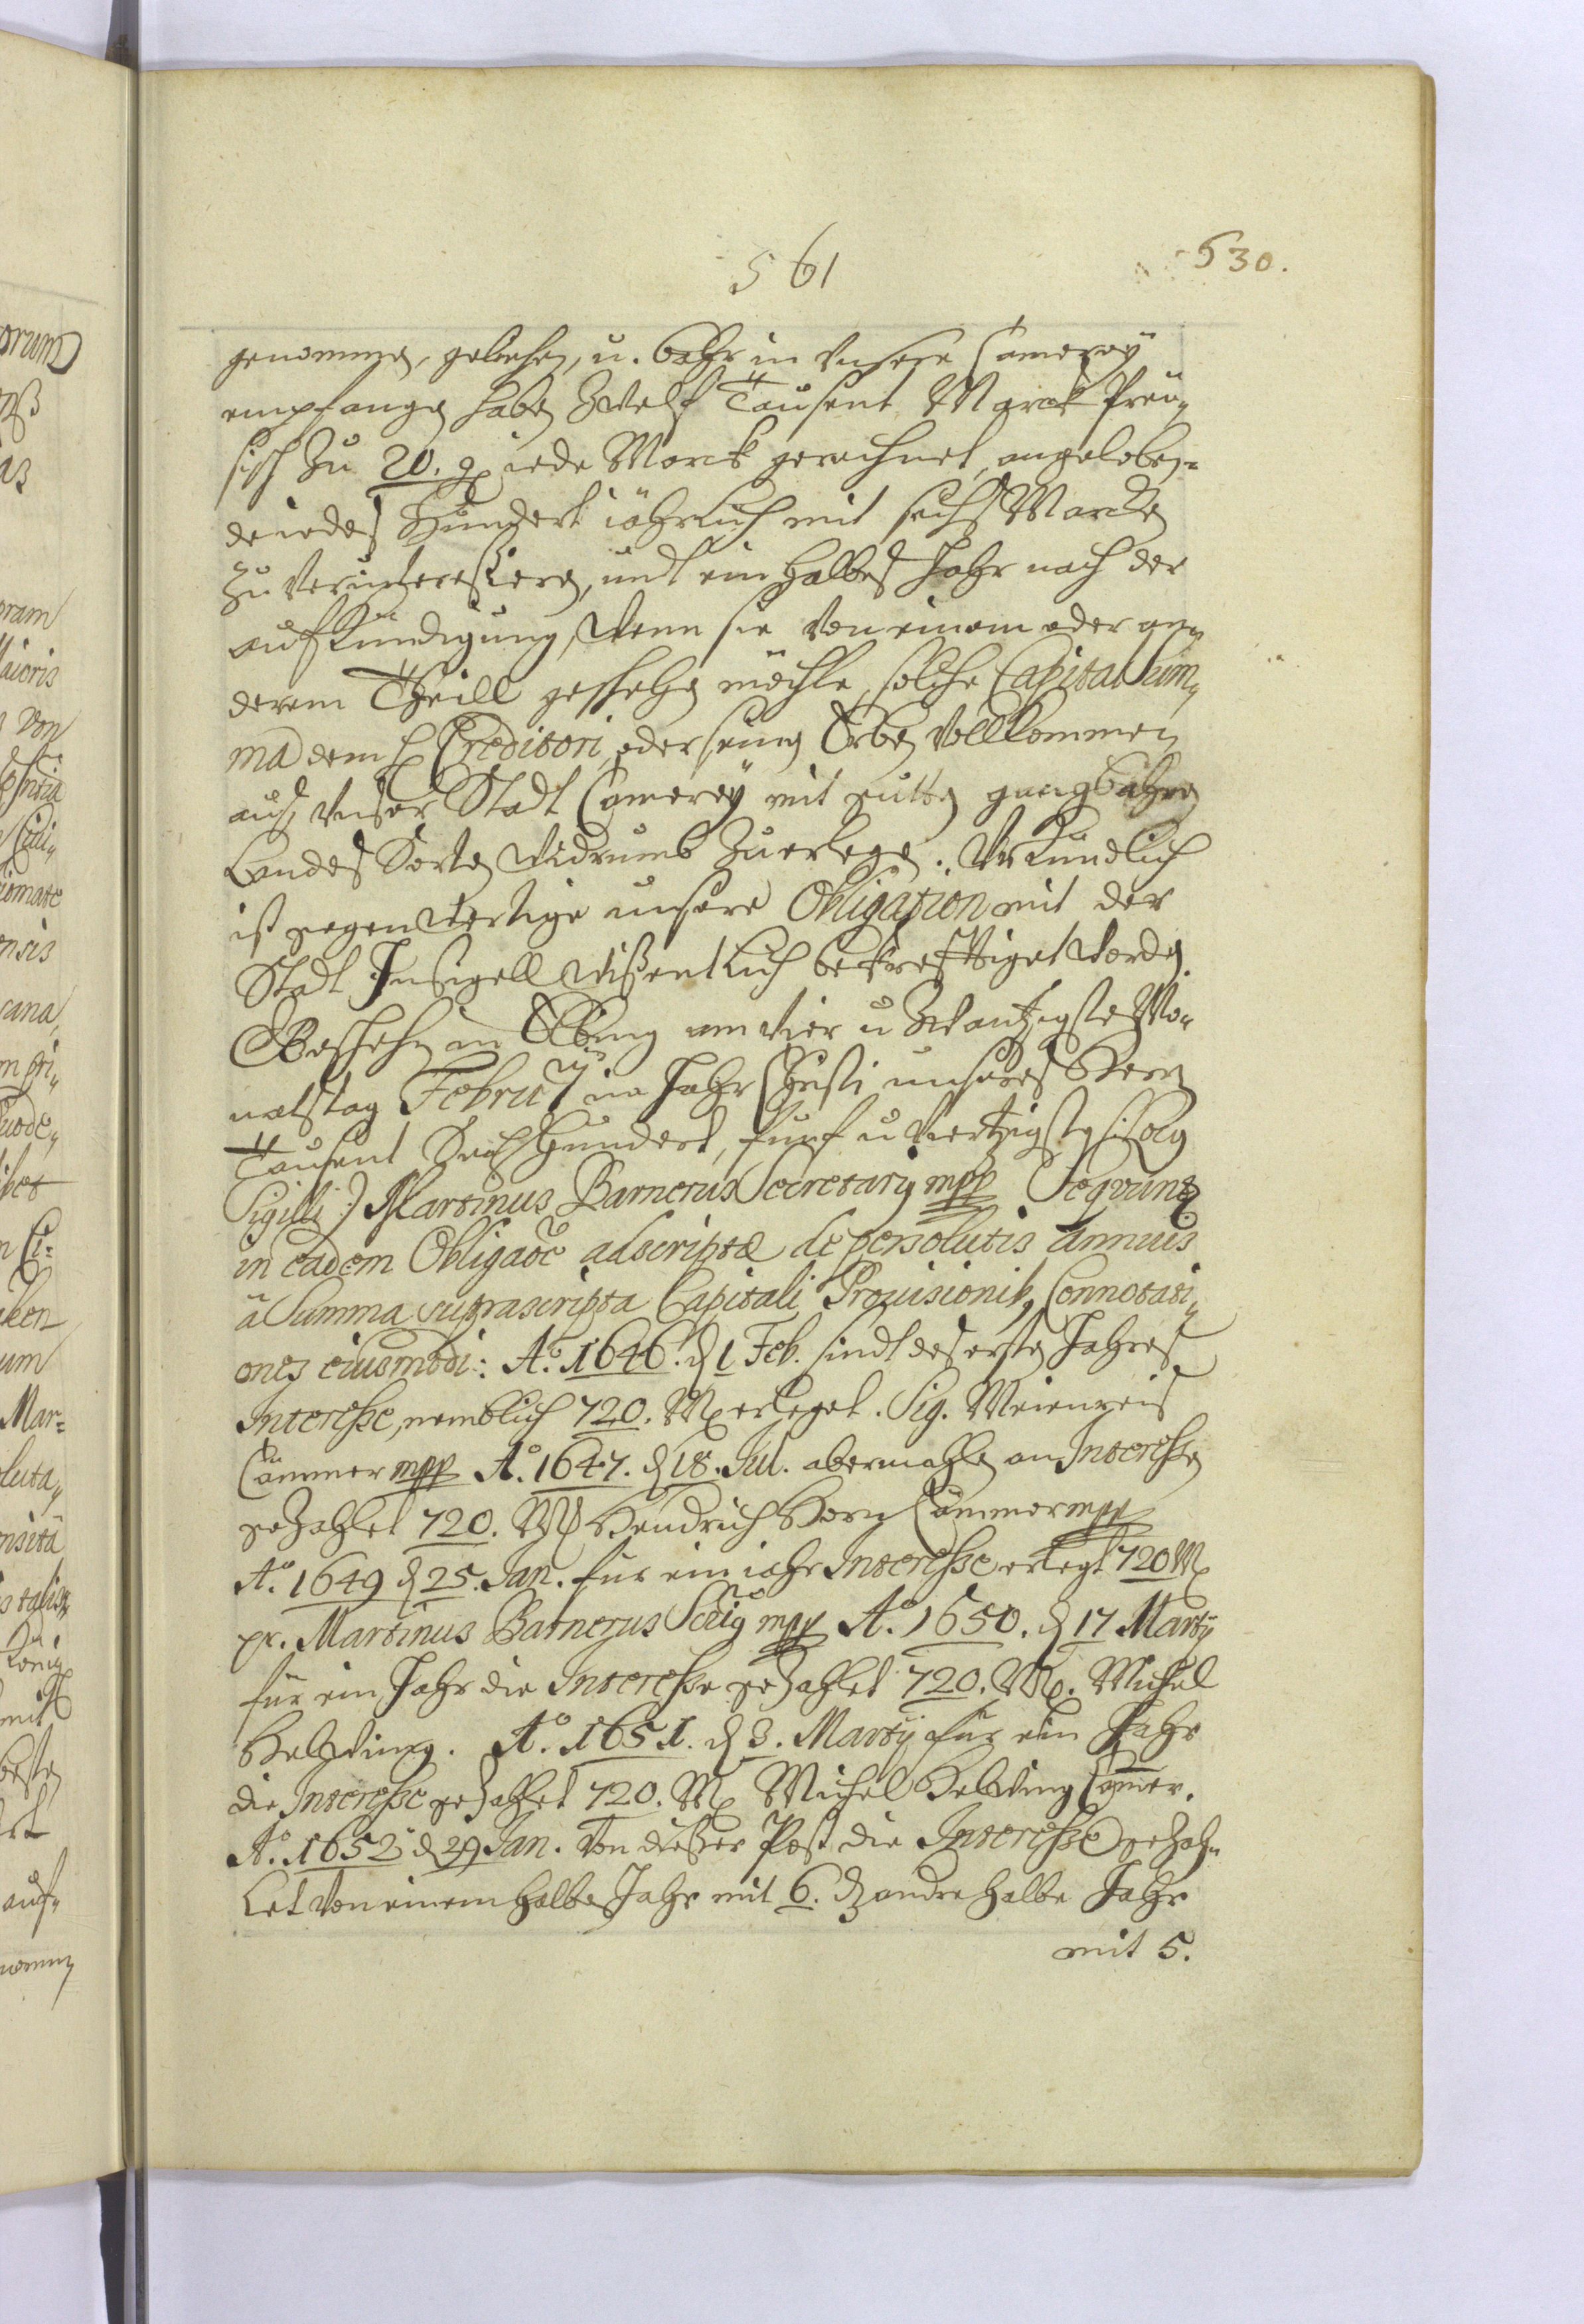 561
530.
genommen, geliehen, u. bahr in Unsere Camereÿ
empfangen haben Zwelf Tausent Marck Preu„
sisch Zu 20. g. iede Marck gerechnet, angeloben„
de iedes Hundert iährlich mit sechs Marcken
Zu verinteressieren, undt ein halbes Jahr nach der
auffkündigung, Wenn sie von einem oder an„
derem Theill geschehen möchte, solche Capital Sum„
ma dem H Creditori, oder seinen Erben Vollkommen
aus Unser Stadt Camereÿ mit gutten gangbahren
Landes Sorten Widrumb Zuerlegen. Urkundlich
ist gegenwertige unsere Obligation mit der
Stadt Insigell Wissentlich bekrefftiget worden.
Geschehen in Elbing am Vier u Zwantzigsten Mo„
natstag Febru: im Jahr Christi unseres Herren
Tausent Sechs Hundert, funf u Viertzigsten (: Locq
Sigilli :) Martinus Barnerus Secretarıq mpp Seqvunt
in eadem Obligaõe adscriptæ de persolutis annuis
à Summa suprascripta Capitali Prouisionib, Connotati„
ones eiusmodi: Aº. 1646. d 1 Feb. sindt des ersten Jahres
Interesse, nemblich 720. M erleget. Sig. Meienreis
Cämmer mpp Aº. 1647. d 18. Jul. abermahlen an Interessen
gezahlet 720. M Hendrich Horn Cämmer mpp
Aº. 1649 d 25. Jan. für ein iahr Interesse erlegt 720 M
pr. Martinus Barnerus Secrıq mpp Aº. 1650. d 17 Martÿ
für ein Jahr die Interesse gezahlet 720. M. Michel
Helwing. Aº. 1651. d 3. Martÿ für ein Jahr
die Interesse gezahlet 720. M Michel Helwing Cammer.
Aº. 1652 d 29 Jan. Von dieser Post die Interesse gezah„
let Von einem halben Jahr mit 6. dz andre halbe Jahr
mit 5.